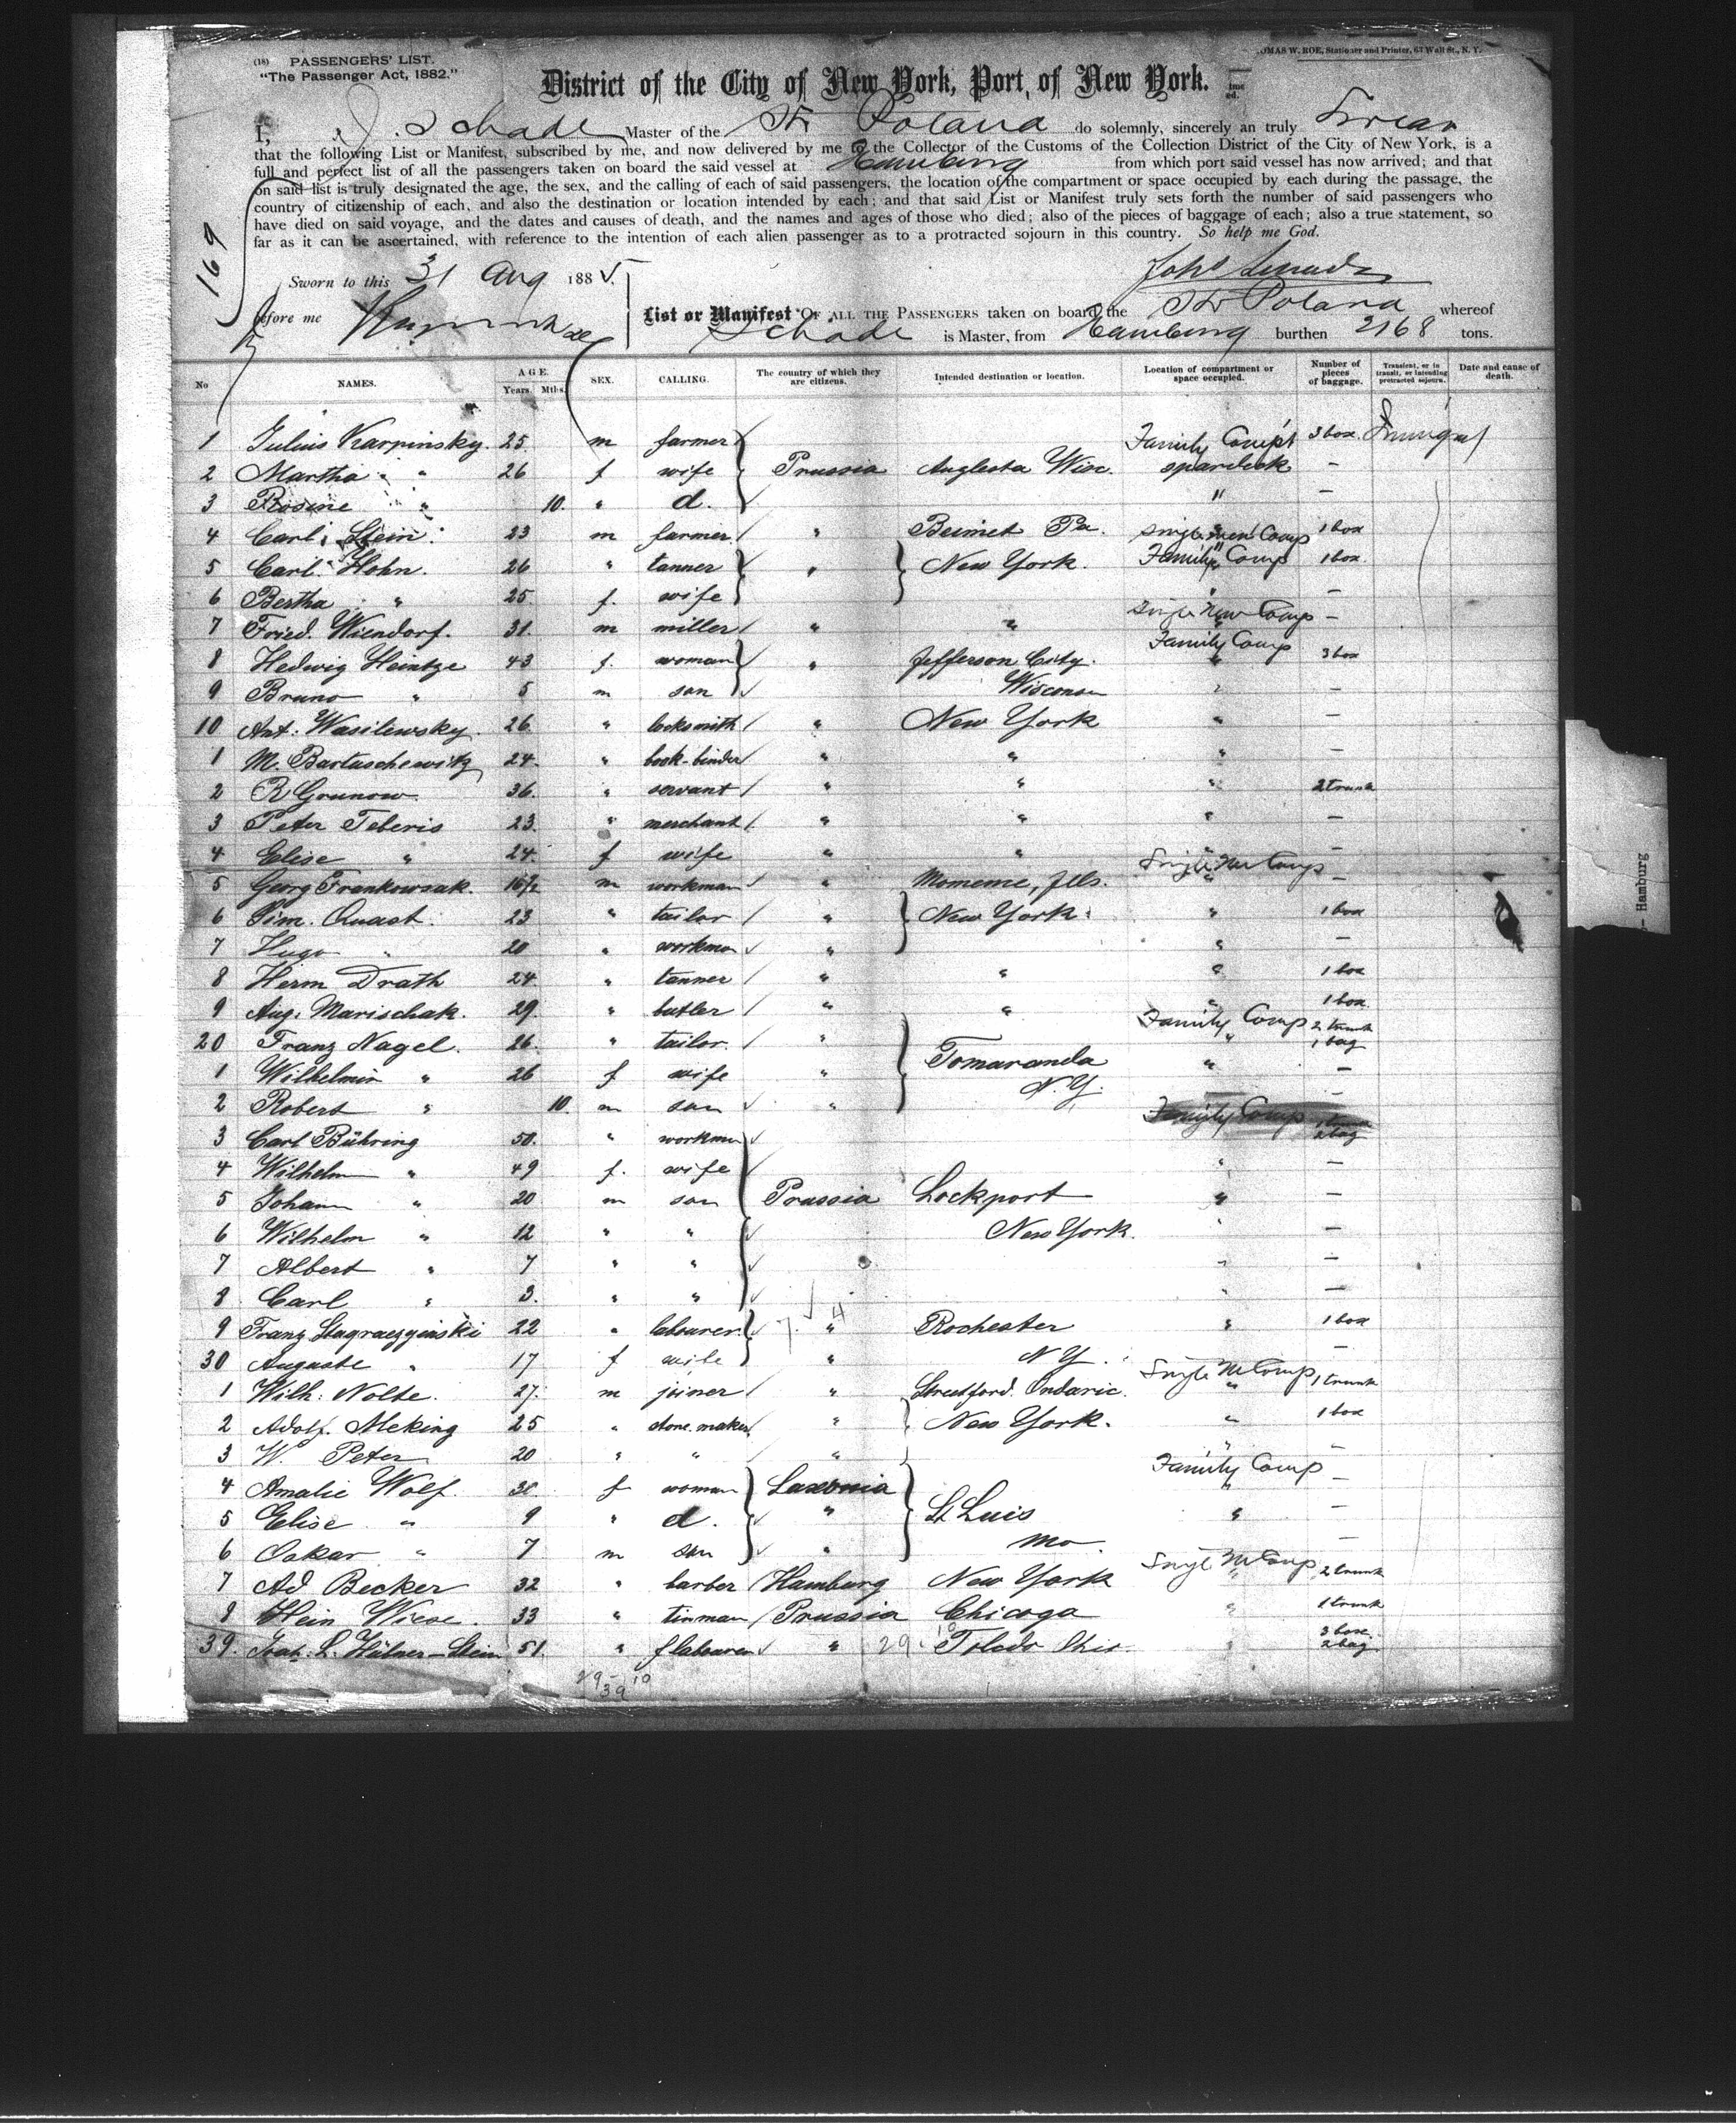 (18) PASSENGERS' LIST.
"The Passenger Act, 1882."
OMAS W. ROE, Stationer and Printer, 63 Wall St., N. Y.
District of the City of New York, Port of New York.
I, J. Schade Master of the Str Polaria do solemnly, sincerely an truly Swear
that the following List or Manifest, subscribed by me, and now delivered by me to the Collector of the Customs of the Collection District of the City of New York, is a
full and perfect list of all the passengers taken on board the said vessel at Hamburg from which port said vessel has now arrived; and that
on said list is truly designated the age, the sex, and the calling of each of said passengers, the location of the compartment or space occupied by each during the passage, the
country of citizenship of each, and also the destination or location intended by each; and that said List or Manifest truly sets forth the number of said passengers who
have died on said voyage, and the dates and causes of death, and the names and ages of those who died; also of the pieces of baggage of each; also a true statement, so
far as it can be ascertained, with reference to the intention of each alien passenger as to a protracted sojourn in this country. So help me God.
169
Sworn to this 31 Aug 1885
before me
List or Manifest OF ALL THE PASSENGERS taken on board the Str Polaria whereof
Schade is Master, from Hamburg burthen 2168 tons.
No NAMES. AGE. Years. Mths. SEX. CALLING. The country of which they are citizens. Intended destination or location. Location of compartment or space occupied. Number of pieces of baggage. Transient, or in transit, or intending protracted sojourn. Date and cause of death.
1 Julius Karpinsky. 25 m farmer Family Comp't 3 box Immigrant
2 Martha " 26 f wife Prussia Auglesta Wisc. spardeck –
3 Rosine " 10. " d. " –
4 Carl Stein 23 m farmer " Beimet Pa. Single men Comp 1 box
5 Carl Hohn. 26 " tanner " New York. Family Comp 1 box
6 Bertha " 25 f. wife " –
7 Fried. Wiendorf. 31. m miller " " Single Men Comp –
8 Hedwig Heintze 43 f. woman " Jefferson City. Family Comp 3 box
9 Bruno " 5 m son Wisconsin " –
10 Ant: Wasilewsky. 26 " locksmith " New York " –
1 M. Bartuschewitz 24 " book-binder " " " –
2 R Grunow. 36. " servant " " " 2 trunk
3 Peter Teberis 23. " merchant " " " –
4 Elise " 24. f wife " " " –
5 Georg Frankowsak. 16½ m workman " Momeme, Jlls. Single Men Comp –
6 Quast. 23 " tailor " New York. " 1 box
7 Hugo " 20 " workman " " –
8 Herm Drath 24 " tanner " " " 1 box
9 Aug. Marischak. 29. " butler " " " 1 box.
20 Franz Nagel. 26. " tailor. " Family Comp 2 trunk 1 bag
1 Wilhelmin " 26 f wife " Tomaranda " –
2 Robert " 10. m son " N.Y. –
3 Carl Bühring 50. " workman Family Comp 2 bag
4 Wilhelm " 49 f. wife " –
5 Johann " 20 m son Prussia Lockport " –
6 Wilhelm " 12 " " New York. " –
7 Albert " 7 " " " –
8 Carl " 3. " " " –
9 Franz 22 " labourer. " Rochester " 1 box
30 Auguste " 17 f wife " N Y. –
1 Wilh. Nolte. 27. m joiner " Streetford. Ontaric. Single M Comp 1 trunk
2 Adolf. Meking 25 " stone.maker " New York. " 1 box
3 W. Peter 20 " " " " –
4 Amalie Wolf. 30 f woman Saxonia Family Comp –
5 Elise " 9 " d. " St Luis " –
6 Oskar " 7 m son " Mo. –
7 Ad Becker 32 " barber Hamburg New York Single M Comp 2 trunk
8 Hein Wiese. 33 " tinman Prussia Chicago " 1 trunk
39. Joh. L. Hübner-Stein 51. " labourer " Toledo Ohio. " 3 box. 2 bag
29 10
39
Hamburg